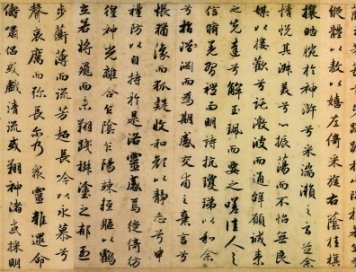 體以敖以嬉左倚采旄右蔭桂旗
攘皓腕於神滸兮采湍瀨之玄芝余
情悅其淑美兮心振蕩而不怡無良
媒以接歡兮託微波而通辭願誠素
之先達兮解玉珮而要之嗟佳人之
信脩羌習禮而明詩抗瓊珶以和余
兮指潛淵而為期感交甫之棄言兮
悵猶豫而狐疑收和顏以靜志兮申
禮防以自持於是洛靈感焉徙倚彷
徨神光離合乍陰乍陽竦輕軀以鶴
立若將飛而未翔踐椒塗之郁烈
步蘅薄而流芳超長吟以永慕兮
聲哀厲而彌長爾乃眾靈雜遝命
儔嘯侶或戲清流或翔神渚或採明